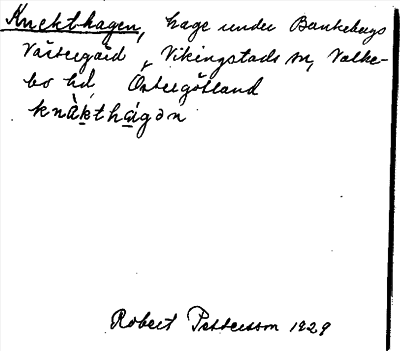 Knekthagen, hage under Bankebergs
Västergård i Vikingstads sn, Valke-
bo hd, Östergötland
knàkthàgən
Robert Pettersson 1929